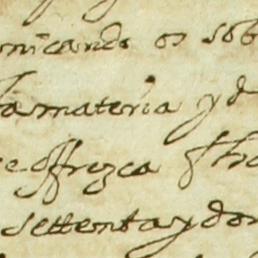 nicando os sob
la materia y d
se offrezca
settenta y dos